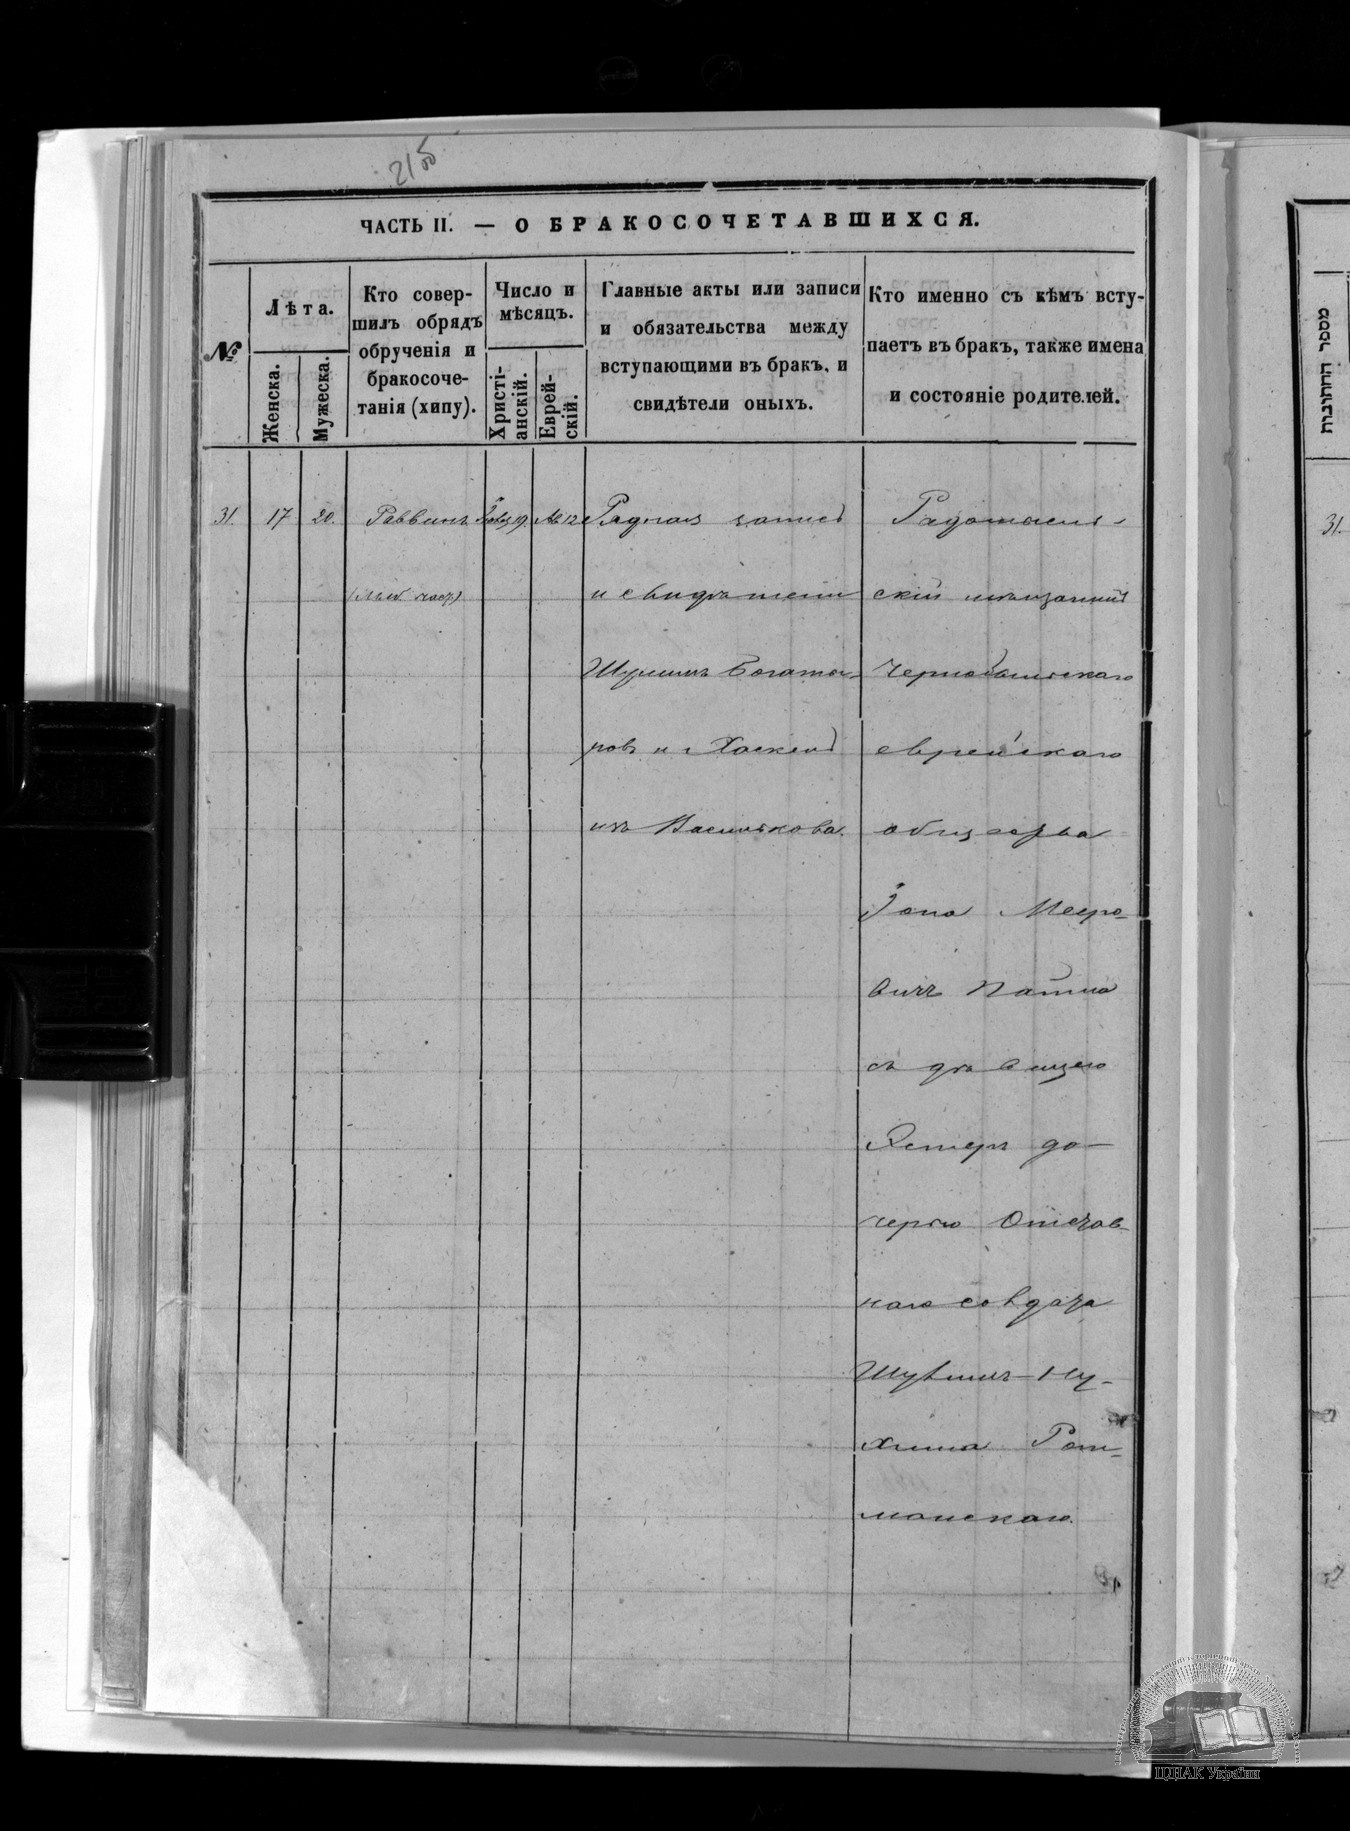 215
об
ЧАСТЬ II. — О БРАКОСОЧЕТАВШИХСЯ.
№
Лѣта.
Женска.
Мужеска.
Кто совер-
шилъ обрядъ
обрученія и
бракосоче-
танія (хипу).
Число и
мѣсяцъ.
Христі-
анскій.
Еврей-
скій.
Главные акты или записи
и обязательства между
вступающими въ бракъ, и
свидѣтели оныхъ.
Кто именно съ кѣмъ всту-
паетъ въ бракъ, также имена
и состояніе родителей.
31. 17 20. Раввинъ 19. 12 Рядная запись
и свидѣтели
Шулимъ Богаты-
ровъ и Хаскель
изъ Василькова.
Радомысль-
скій мѣщанинъ
Чернобыльскаго
еврейскаго
общества
Іона Мееро-
вичъ
съ дѣвицею
Эстеръ до-
черью Отстав-
наго солдата
Ну-
хима Рот-
манскаго.
מספר החתונות
31.
ЦДІАК України